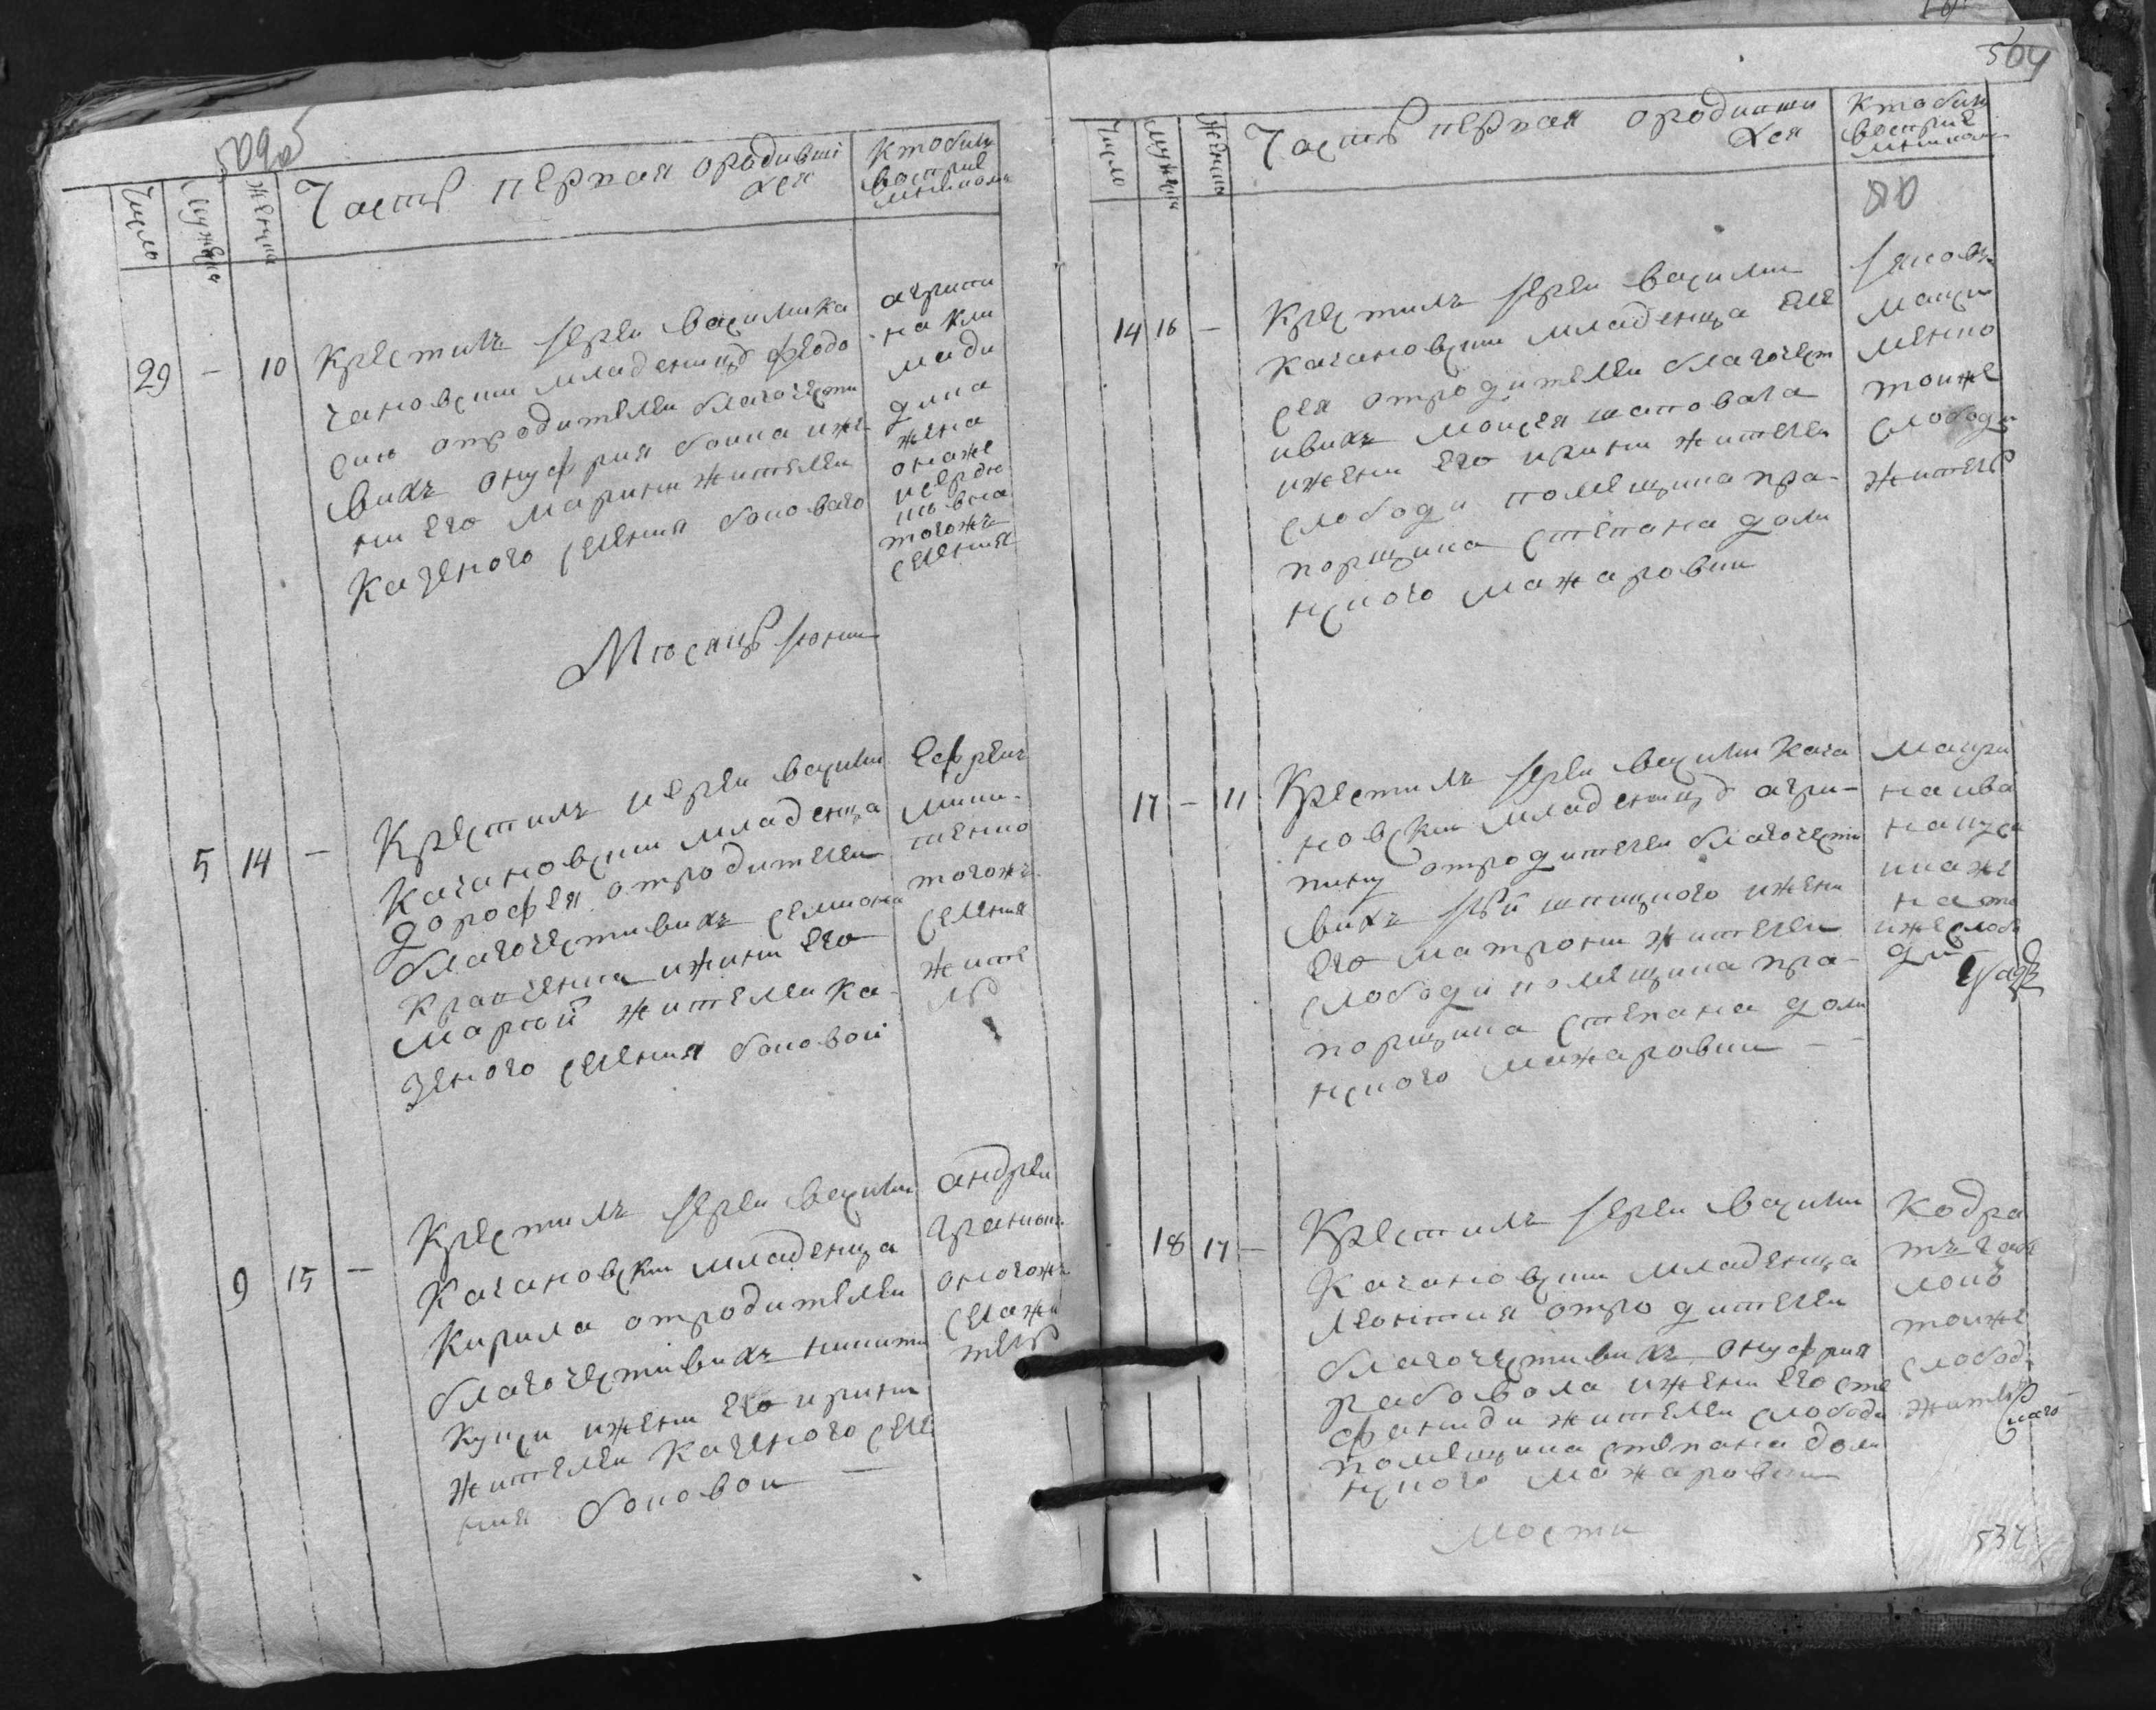 Часть первая ородивши
хся
Ктобилъ
восприе
мникомъ
Число
Мужеска
Женска
29 - 10
Крестилъ іерей василий ка
чановский младеницу феодо
сию отродителей благочести
вихъ онуфрия боика ижи
ни его марини жителей
Казеного селения боковаго
агрипи
на кли
мади
дина
жена
онаже
тогожъ
селения
Месяцъ іюний
5 14 -
Крестилъ иерей василий
Качановский младенца
дорофея отродителей
благочестивихъ семиона
кравченка ижини его
марфи жителей ка-
зеного селения боковой
ефремъ
мики-
тенко
тогожъ
селения
жите
ль
9 15 -
Крестилъ іерей василий
Качановский младенца
Кирила отродителей
благочестивихъ никити
куци ижени его ирини
жителей казеного селе
ния боковой
андрей
оногожъ
села жи
тель
504
Часть первая ородивши
хся
Ктобилъ
восприе
мникомъ
Число
Мужеска
Женска
14 16 -
Крестилъ іерей василий
Качановский младенца еле
сея отродителей благочест
ивихъ моисея шаповала
ижени его ирини жителей
слободи помещика пра-
порщика степана доли
нского макаровки
іяковъ
макси
менко
тоиже
слободи
житель
17 - 11
Крестилъ іерей василий Кача
новский младеницу агри-
пину отродителей благочести
вихъ ижени
его матрони жителей
слободи помещика пра-
порщика степана доли
нского макаровки
маври
на ива
на куц
жи
на то
иже слобо
ди
18 17 -
Крестилъ іерей василий
Качановский младенца
леонтия отродителей
благочестивихъ онуфрия
рабовола ижени его сте
фаниди жителей слободи
помещика степана доли
нского макаровки
Кодра
тъ
тоиже
слобод
житель
532